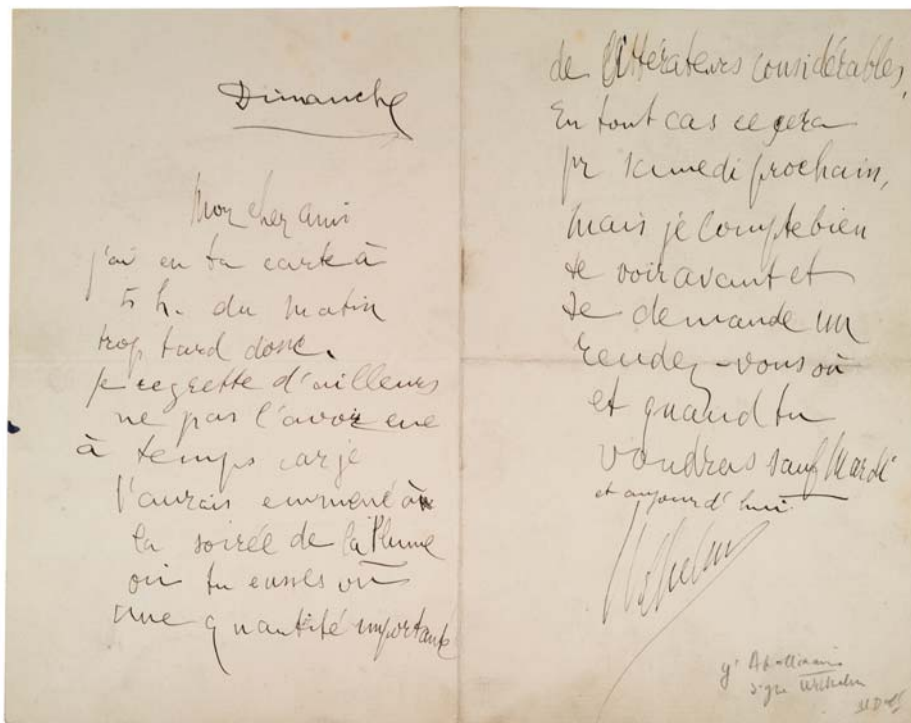 Dimanche
Mon cher ami
j'ai eu ta carte à
5 h. du matin
trop tard donc.
je regrette d'ailleurs
ne pas l'avoir eue
à temps car je
t'aurais emmené à
la soirée de la Plume
où tu eusses vu
une quantité importante
de littérateurs considérables,
En tout cas ce sera
pr samedi prochain,
mais je compte bien
te voir avant et
te demande un
rendez-vous où
et quand tu
voudras sauf Mardi
et aujourd'hui.
Wilhelm
g' Apollinaire
signe Wilhelm